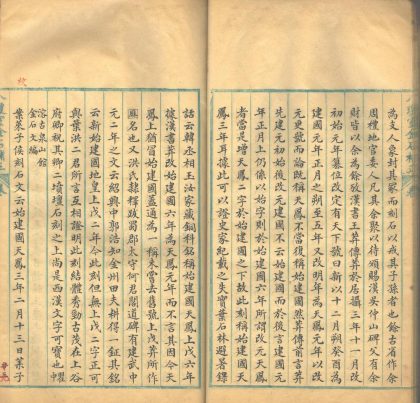 為支人食封其冢而刻石以戒其子孫者也餘古省作余
周禮地官委人凡其余聚以待頒賜漢吳仲山碑父有余
財皆以余為餘攷漢書王莽傳莽於居攝三年十一月改
初始元年簒位改定有天下號曰新以十二月朔癸酉為
建國元年正月之朔至五年又改明年為天鳳元年以改
元更號而論既稱天鳳不當復稱始建國然莽傳前言莽
先建元初始後改元建國不云始建國而於後言建國元
年正月上仍係以始字則於始建國六年所謂改元天鳳
者當是增天鳳二字於始建國之下故此刻稱始建國天
鳳三年耳據此可以證史家紀載之失實葉石林避暑錄
話云韓丞相玉汝家藏銅枓銘稱始建國天鳳上戊六年
據漢書莽改始建國六年為天鳳元年而不言其因今天
鳳上猶冒始建國蓋通為一稱未嘗去舊號上戊莽所作
厤名也又洪氏隸釋跋蜀郡太守何君閣道碑有建武中
元二年之文云紹興中郭浩知金州田夫耕得一鉦其銘
云新始建國地皇上戊二年今此刻但無上戊二字正可
與葉洪二君所言互相證明此刻結體秀勁古茂在上谷
府卿祝其卿二墳壇石刻之上尚是西漢文字可寶也瞿中
溶古泉山館
金石文編
萊子侯刻石文云始建國天鳳三年二月十三日萊子